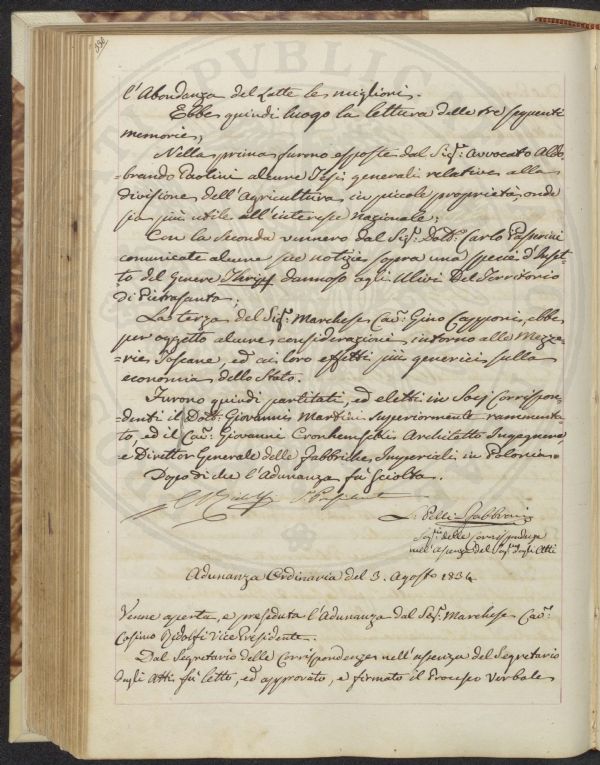 l'Abondanza del Latte le migliori.
Ebbe quindi luogo la lettura delle tre seguenti
memorie;
Nella prima furono esposte dal Sig.r Avvocato Aldo-
-brando Paolini alcune Tesi generali relative alla
divisione dell'Agricoltura in piccole proprietà, onde
sia più utile all'interesse nazionale;
Con la seconda vennero dal Sig.r Dott.r Carlo Passerini
comunicate alcune sue notizie sopra una specie d'Inset-
-to del genere Thrips dannoso agli Ulivi Del Territorio
di Pietrasanta;
La terza del Sig.r Marchese Cav.r Gino Capponi, ebbe
per oggetto alcune considerazioni intorno alle Mezze-
-rie Toscane, ed ai loro effetti più generici sulla
economia dello Stato.
Furono quindi partitati, ed eletti in Socj Corrispon-
-denti il Dott.r Giovanni Martini superiormente rammenta-
to, ed il Cav.r Giovanni Architetto Ingegnere,
e Direttor Generale delle Fabbriche Imperiali in Polonia.
Dopo di che l'Adunanza fù sciolta.
C. Ridolfi V. Presidente
L. Pelli Fabbroni
Seg.rio delle Corrispondenze
nell'assenza del Seg.rio degli Atti
Adunanza Ordinaria del 3. Agosto 1834
Venne aperta, e preseduta l'Adunanza dal Sig.r Marchese Cav.r
Cosimo Ridolfi Vice Presidente.
Dal Segretario delle Corrispondenze nell'assenza del Segretario
degli Atti fù letto, ed approvato, e firmato il Processo Verbale